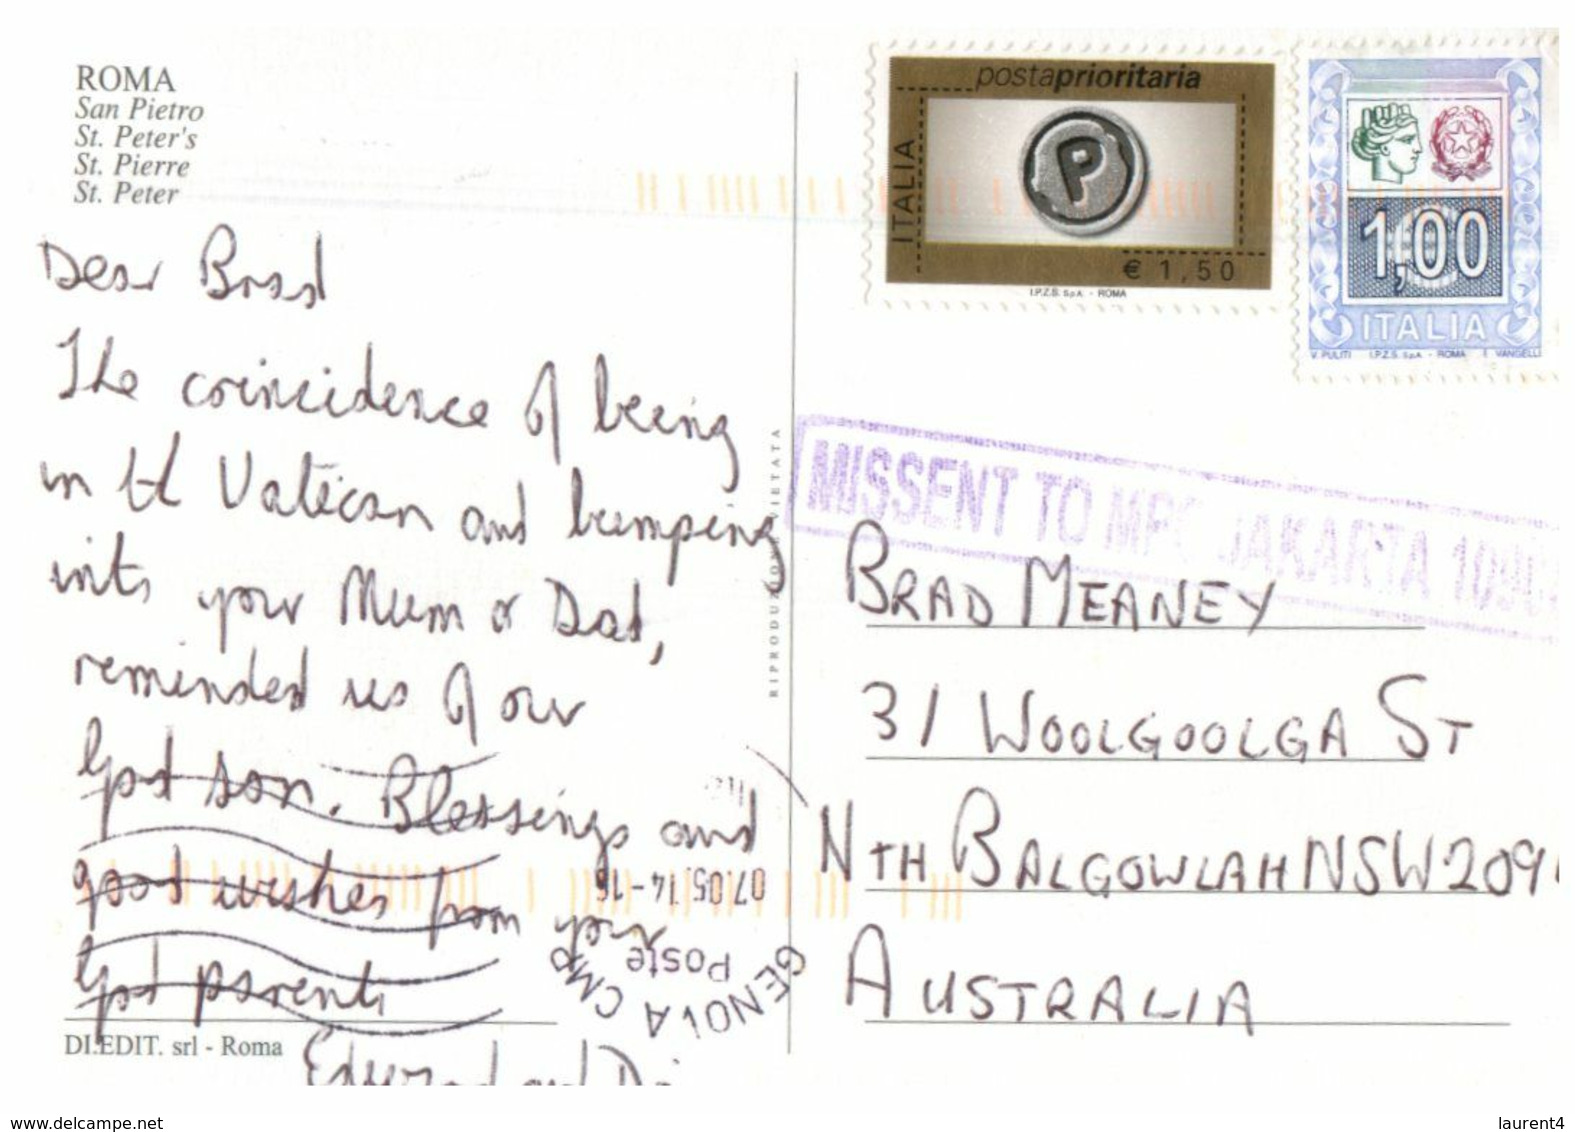 ROMA
San Pietro
St. Peter's
St. Pierre
St. Peter
Dear Brad
The coincidence of being
in the Vatican and bumping
into your Mum & Dad,
reminded us of our
God son. Blessings and
good wishes from your
God parents
Edward and Di
DI.EDIT. srl - Roma
RIPRODUZIONE VIETATA
postaprioritaria
ITALIA
P
€ 1,50
I.P.Z.S. S.p.A. - ROMA
1,00
ITALIA
V. PULITI I.P.Z.S. S.p.A. - ROMA E. VANGELLI
MISSENT TO MPC JAKARTA
BRAD MEANEY
31 WOOLGOOLGA ST
NTH BALGOWLAH NSW 209
AUSTRALIA
07.05.14-16
Poste
GENOVA CMP
www.delcampe.net
laurent4